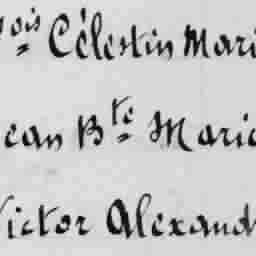 çois Célestin Mari
ean Bte Marie
Victor Alexand